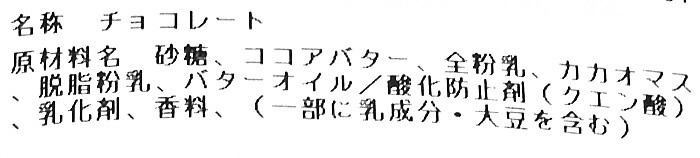 名称　チョコレート
原材料名　砂糖、ココアバター、全粉乳、カカオマス
、脱脂粉乳、バターオイル／酸化防止剤（クエン酸）
、乳化剤、香料、（一部に乳成分・大豆を含む）